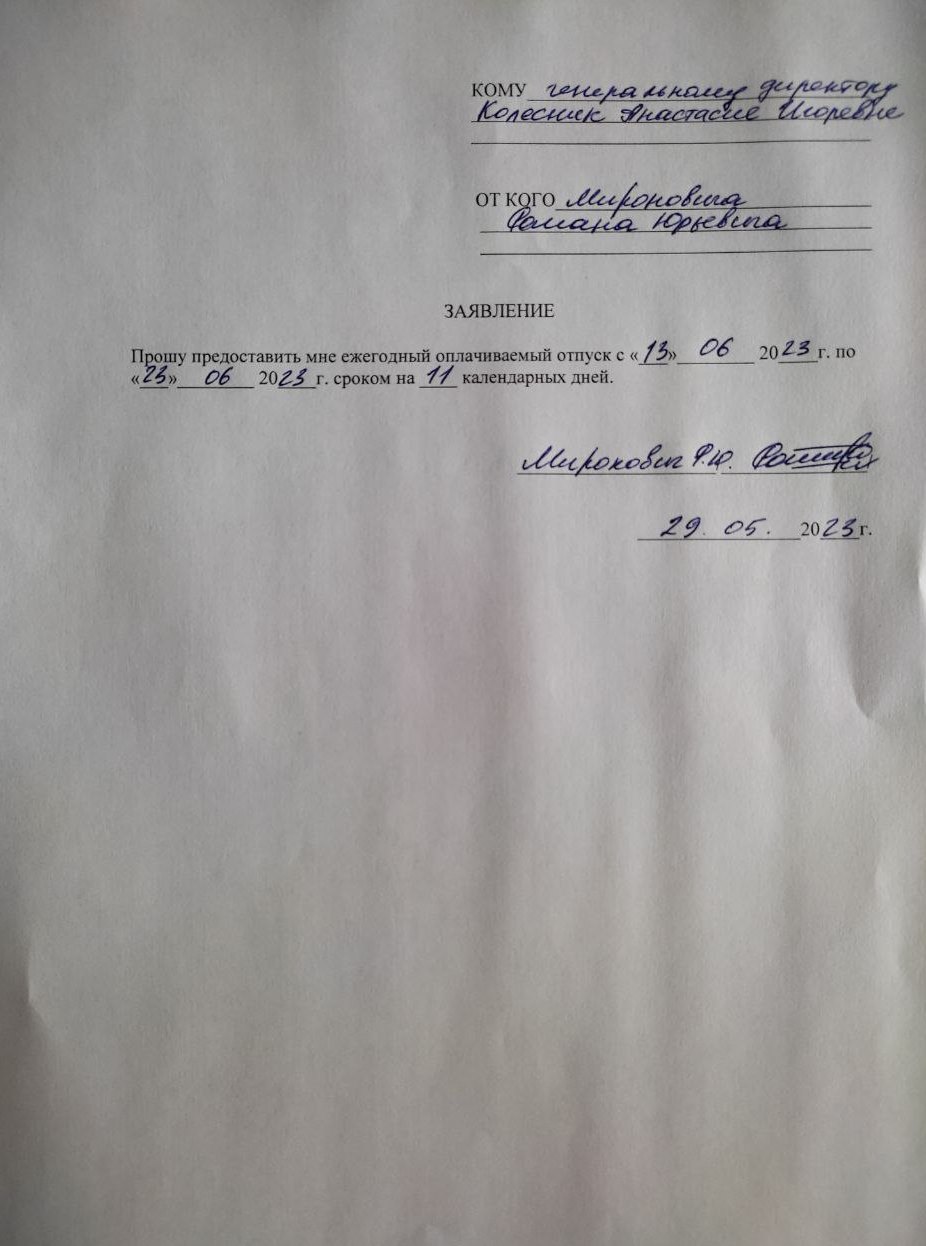 КОМУ генеральному директору
Колесник Анастасие Игоревне
ОТ КОГО Мироновича
Романа Юрьевича
ЗАЯВЛЕНИЕ
Прошу предоставить мне ежегодный оплачиваемый отпуск с «13» 06 2023 г. по
«23» 06 2023 г. сроком на 11 календарных дней.
Миронович Р.Ю.
29. 05. 2023 г.